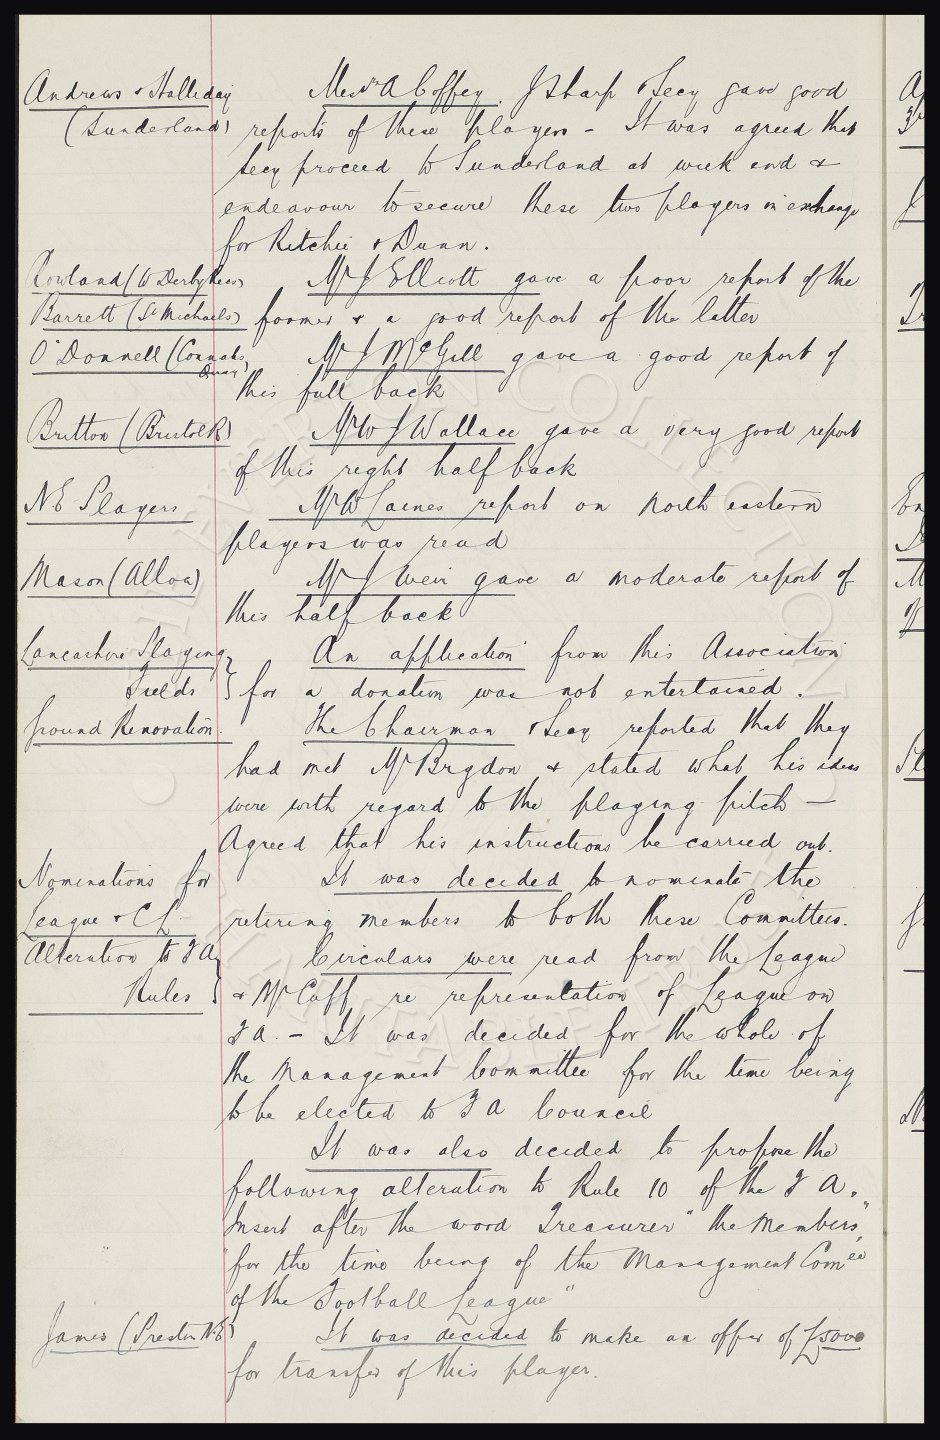 Andrews & Halliday
(Sunderland)
Messrs A Coffey, J Sharp & Secy gave good
reports of these players - It was agreed that
Secy proceed to Sunderland at week end &
endeavour to secure these two players in exchange
for Ritchie & Dunn.
Rowland (W Derby
Mr J Elliott gave a poor report of the
Barrett (St Michaels)
former & a good report of the latter
O'Donnell (Connahs
Quay)
Mr J McGill gave a good report of
this full back
Britton (Bristol R)
Mr W J Wallace gave a very good report
of this right half back
N E Players
Mr W Laines report on North eastern
players was read
Mason (Alloa)
Mr J Weir gave a moderate report of
this half back
Lancashire Playing
Fields
An application from this Association
for a donation was not entertained.
Ground Renovation
The Chairman & Secy reported that they
had met Mr Brydon & stated what his ideas
were with regard to the playing pitch -
Agreed that his instructions be carried out.
Nominations for
League & C L
It was decided to nominate the
retiring members to both these Committees.
Alteration to F A
Rules
Circulars were read from the League
& Mr Cuff re representation of League on
F A. - It was decided for the whole of
the Management Committee for the time being
to be elected to F A Council
It was also decided to propose the
following alteration to Rule 10 of the F A.
Insert after the word Treasurer "the Members
"for the time being of the Management Comee
of the Football League"
James (Preston N E)
It was decided to make an offer of £5000
for transfer of this player.